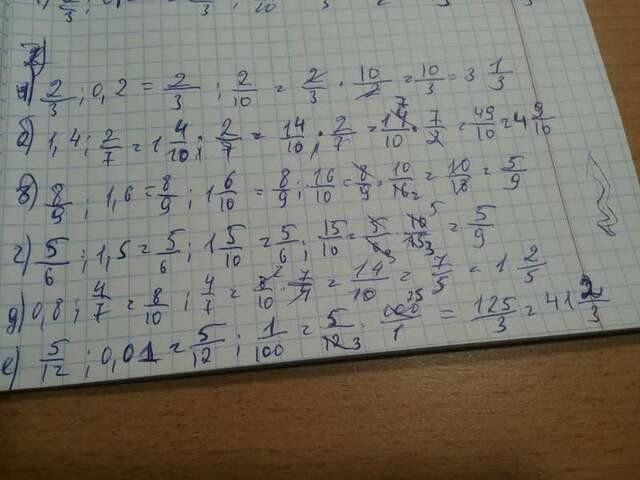 а) 2/3 : 0,2 = 2/3 : 2/10 = 2/3 · 10/2 = 10/3 = 3 1/3
б) 1,4 : 2/7 = 1 4/10 : 2/7 = 14/10 : 2/7 = 14/10 · 7/2 = 49/10 = 4 9/10
в) 8/9 : 1,6 = 8/9 : 1 6/10 = 8/9 : 16/10 = 8/9 · 10/16 = 10/18 = 5/9
г) 5/6 : 1,5 = 5/6 : 1 5/10 = 5/6 : 15/10 = 5/6 · 10/15 = 5/9
д) 0,8 : 4/7 = 8/10 : 4/7 = 8/10 · 7/4 = 14/10 = 7/5 = 1 2/5
е) 5/12 : 0,01 = 5/12 : 1/100 = 5/12 · 100/1 = 125/3 = 41 2/3